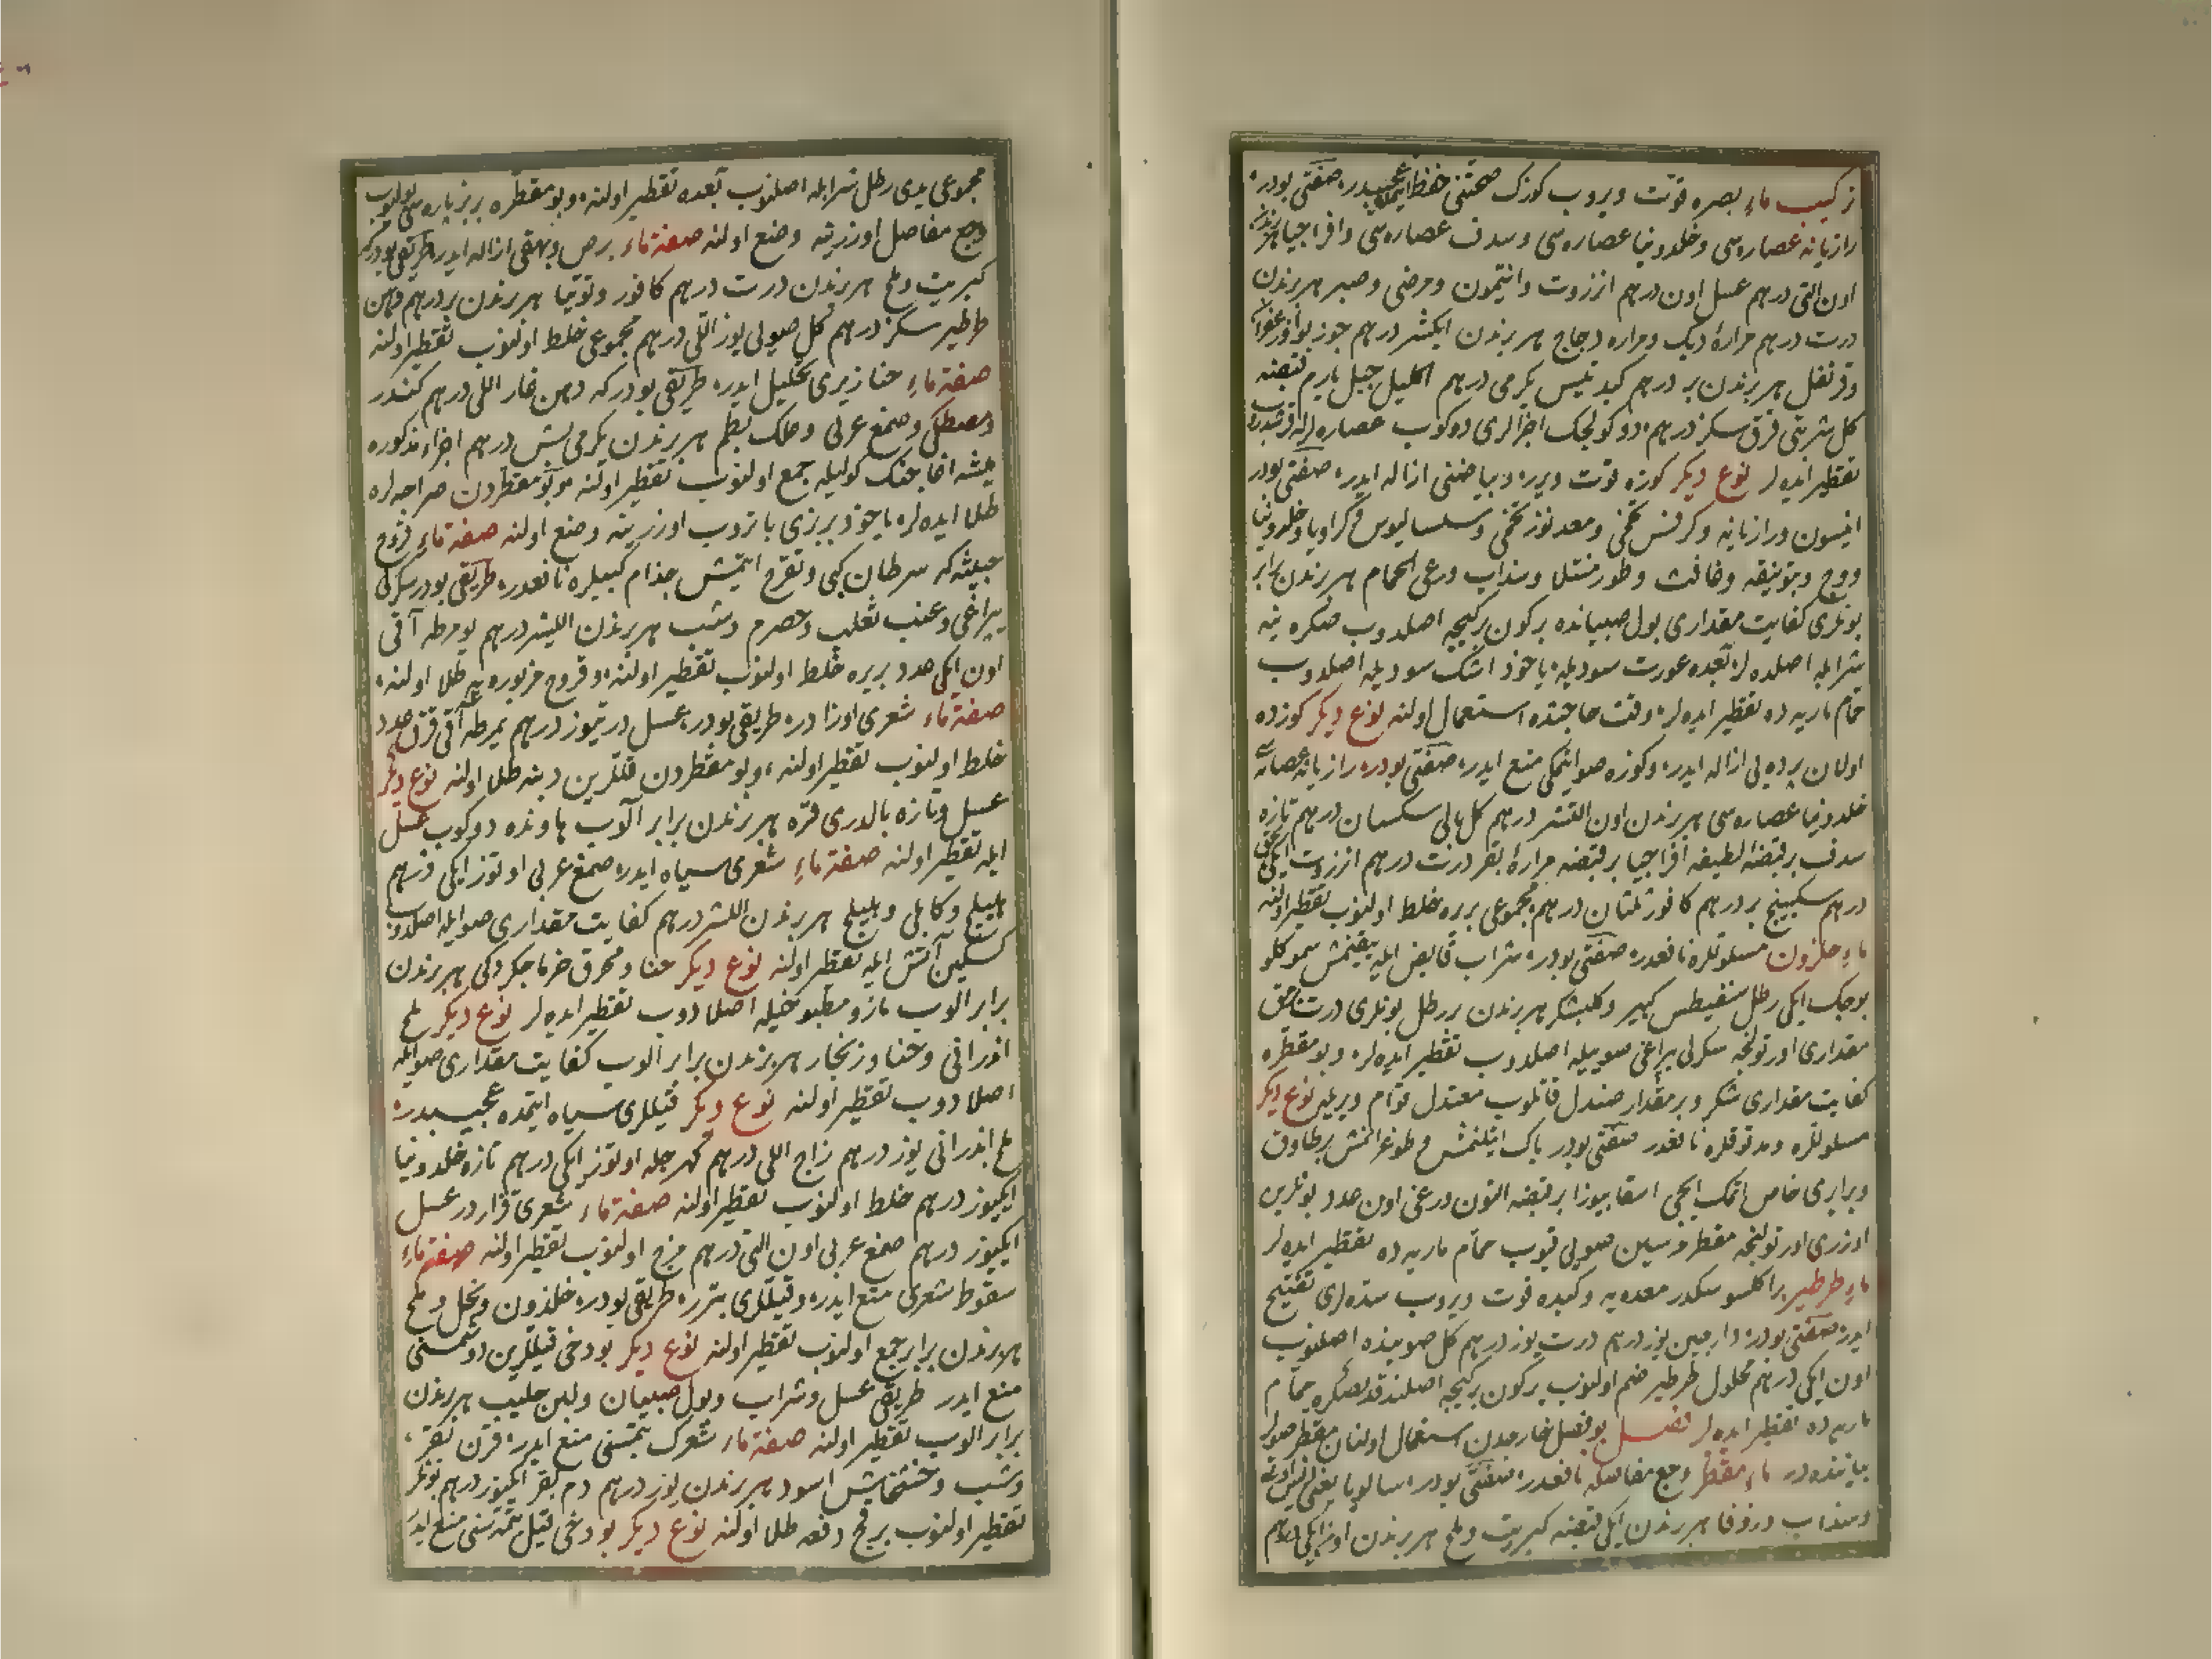 تركيب ماء بصره قوّت ويروب كوزك صحتنى حفظ ايتمكده عجيبدر صفتى بودر
رازيانه عصاره‌سى وخلدونيا عصاره‌سى وسدف عصاره‌سى وافراجيا هربرندن
اون التى درهم عسل اون درهم انزروت وانتيمون وحضض وصبر هربرندن
درت درهم مرارهٔ ديك ومراره دجاج هربرندن ايكيشر درهم جوز بوا وزعفران
وقرنفل هربرندن بر درهم كبد تيس يكرمى درهم اكليل جبل يارم قبضه
كل شربتى قرق سكز درهم دوكولجك اجزالرى دوكوب عصاره لرله قرشدروب
تقطير ايده لر نوع ديكر كوزه قوت ويرر وبياضنى ازاله ايدر صفتى بودر
انيسون ورازيانه وكرفس تخمى ومعدنوز تخمى وسساليوس وكراويا وخلدونيا
ووج وبتونيقه وغافث وطورمنتلا وسذاب ورعى الحمام هربرندن برابر
بونلرى كفايت مقدارى بول صبيانده بر كون بر كيجه اصلدوب صكره ينه
شرابله اصلده لر بعده عورت سوديله ياخود اشك سوديله اصلدوب
حمام ماريه ده تقطير ايده لر وقت حاجتده استعمال اولنه نوع ديكر كوزده
اولان پرده يى ازاله ايدر وكوزه صو اينمكى منع ايدر صفتى بودر رازيانه عصاره‌سى
خلدونيا عصاره‌سى هربرندن اون التيشر درهم كل بالى سكسان درهم تازه
سدف بر قبضه لطيفه افراجيا بر قبضه مرارهٔ بقر درت درهم انزروت ايكى
درهم سكبينج بر درهم كافور ثلثان درهم مجموعى بريره خلط اولنوب تقطير اولنه
ماء حلزون مسلوللره نافعدر صفتى بودر شراب قابض ايله ييقنمش سموكلو
بوجك ايكى رطل سنفيطس كبير وكلبشكر هربرندن بر رطل بونلرى درت پرمق
مقدارى اورتولنجه سكرلى يپراغى صوييله اصلدوب تقطير ايده لر وبو مقطره
كفايت مقدارى شكر وبر مقدار صندل قاتلوب معتدل قوام ويريلور نوع ديكر
مسلوللره ومدقوقلره نافعدر صفتى بودر پاك ايتلنمش وطوغرانمش بر طاوق
وبرابرى خاص اتمك ايچى اسقابيوزا بر قبضه التون ورغى اون عدد بونلرين
اوزرى اورتولنجه مقطر وسيلن صويى قيوب حمام ماريه ده تقطير ايده لر
ماء طرطير براكلسوسكدر معده يه وكبده قوت ويروب سده لرى تفتيح
ايدر صفتى بودر دارچين يوز درهم درت يوز درهم كل صوينده اصلنوب
اون ايكى درهم محلول طرطير ضم اولنوب بر كون بر كيجه اصلندقدنصكره حمام
ماريه ده تقطير ايده لر فصل بو فصل خارجدن استعمال اولنان مقطر صولر
بياننده در ماء مقطر وجع مفاصله نافعدر صفتى بودر سالويا يعنى
وسذاب وزوفا هربرندن ايكى قبضه كبريت وملح هربرندن اون ايكى درهم
مجموعى يدى رطل شرابله اصلنوب بعده تقطير اولنه وبو مقطره بر بز پاره‌سى بولنوب
وجع مفاصل اوزرينه وضع اولنه صفة ماء برص وبهقى ازاله ايدر طريقى بودركه
كبريت وملح هربرندن درت درهم كافور وتوتيا هربرندن بر درهم دهن
طرطير سكز درهم كل صويى يوز اللى درهم مجموعى خلط اولنوب تقطير اولنه
صفة ماء خنازيرى تحليل ايدر طريقى بودركه دهن غار اللى درهم كندر
ومصطكى وصمغ عربى وعلك بطم هربرندن يكرمى بش درهم اجزاء مذكوره
ميشه اغاجنك كوليله جمع اولنوب تقطير اولنه وبو مقطردن صراجه لره
طلا ايده لر ياخود بر بزى باتروب اوزرينه وضع اولنه صفة ماء قروح
خبيثه كه سرطان كبى وتقرح ايتمش جذام كبيلره نافعدر طريقى بودر سكرلى
يپراغى وعنب ثعلب وحصرم وشب هربرندن الليشر درهم يومرطه آقى
اون ايكى عدد بريره خلط اولنوب تقطير اولنه وقروح مزبوره يه طلا اولنه
صفة ماء شعرى اوزادر طريقى بودر عسل درتيوز درهم يمرطه آقى قرق عدد
خلط اولنوب تقطير اولنه وبو مقطردن قللرين دبنه طلا اولنه نوع ديكر
عسل وتازه بالدرى قره هربرندن برابر آلوب هاونده دوكوب عسل
ايله تقطير اولنه صفة ماء شعرى سياه ايدر صمغ عربى اوتوز ايكى درهم
هليلج وكابلى وبليلج هربرندن الليشر درهم كفايت مقدارى صو ايله اصلدوب
تسكين آتش ايله تقطير اولنه نوع ديكر حنا ومحرق خرما جكردكى هربرندن
برابر الوب مازو مطبوخيله اصلادوب تقطير ايده لر نوع ديكر ملح
اندرانى وحنا وزنجار هربرندن برابر الوب كفايت مقدارى صو ايله
اصلادوب تقطير اولنه نوع ديكر قيللرى سياه ايتمده عجيبدر
ملح اندرانى يوز درهم زاج اللى درهم كهرجله اوتوز ايكى درهم تازه خلدونيا
ايكيوز درهم خلط اولنوب تقطير اولنه صفة ماء شعرى قزاردر عسل
ايكيوز درهم صمغ عربى اون التى درهم مزج اولنوب تقطير اولنه صفة ماء
سقوط شعرى منع ايدر وقيللرى بتورر طريقى بودر حلزون ونحل وملح
هربرندن برابر جمع اولنوب تقطير اولنه نوع ديكر بو دخى قيللرين دوشمسنى
منع ايدر طريقى عسل وشراب وبول صبيان ولبن حليب هربرندن
برابر الوب تقطير اولنه صفة ماء شعرك بتمسنى منع ايدر قرن بقر
وشب وخشخاش اسود هربرندن يوز درهم دم بقر ايكيوز درهم بونلر
تقطير اولنوب بر قچ دفعه طلا اولنه نوع ديكر بو دخى قيل بتمه‌سنى منع ايدر